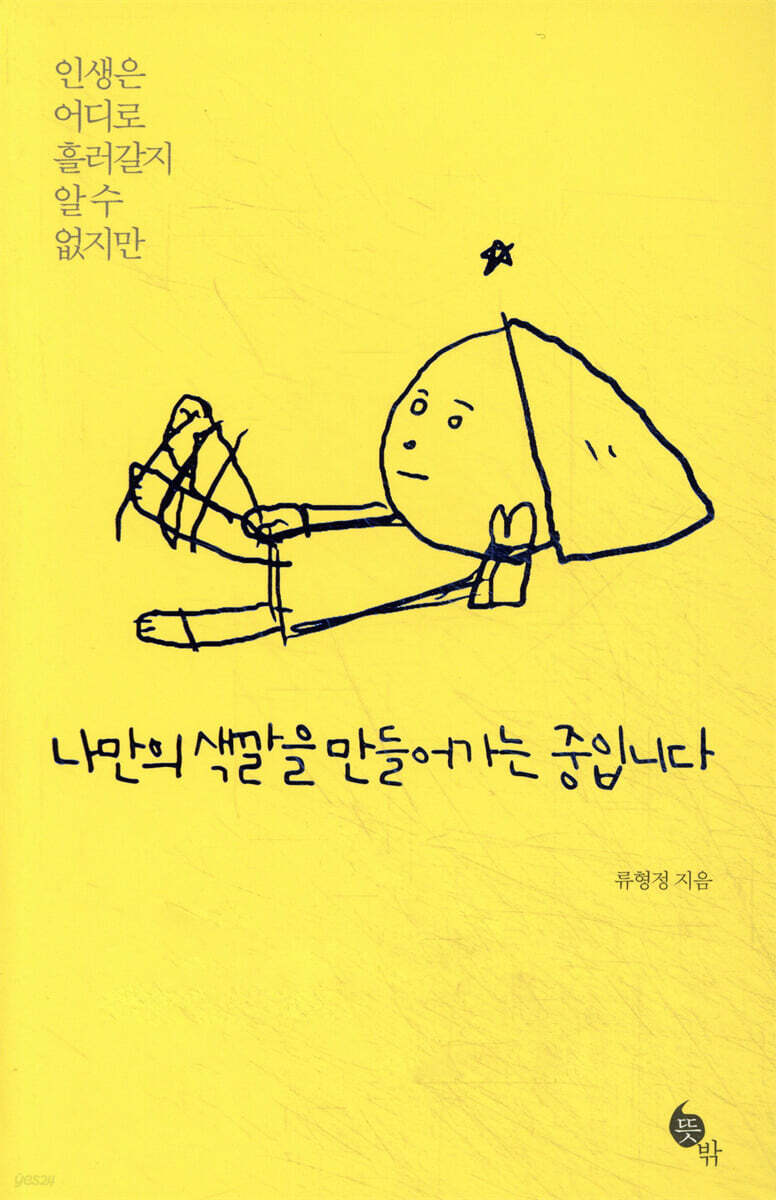 인생은
어디로
흘러갈지
알 수
없지만
나만의 색깔을 만들어가는 중입니다
류형정 지음
뜻
밖
yes24